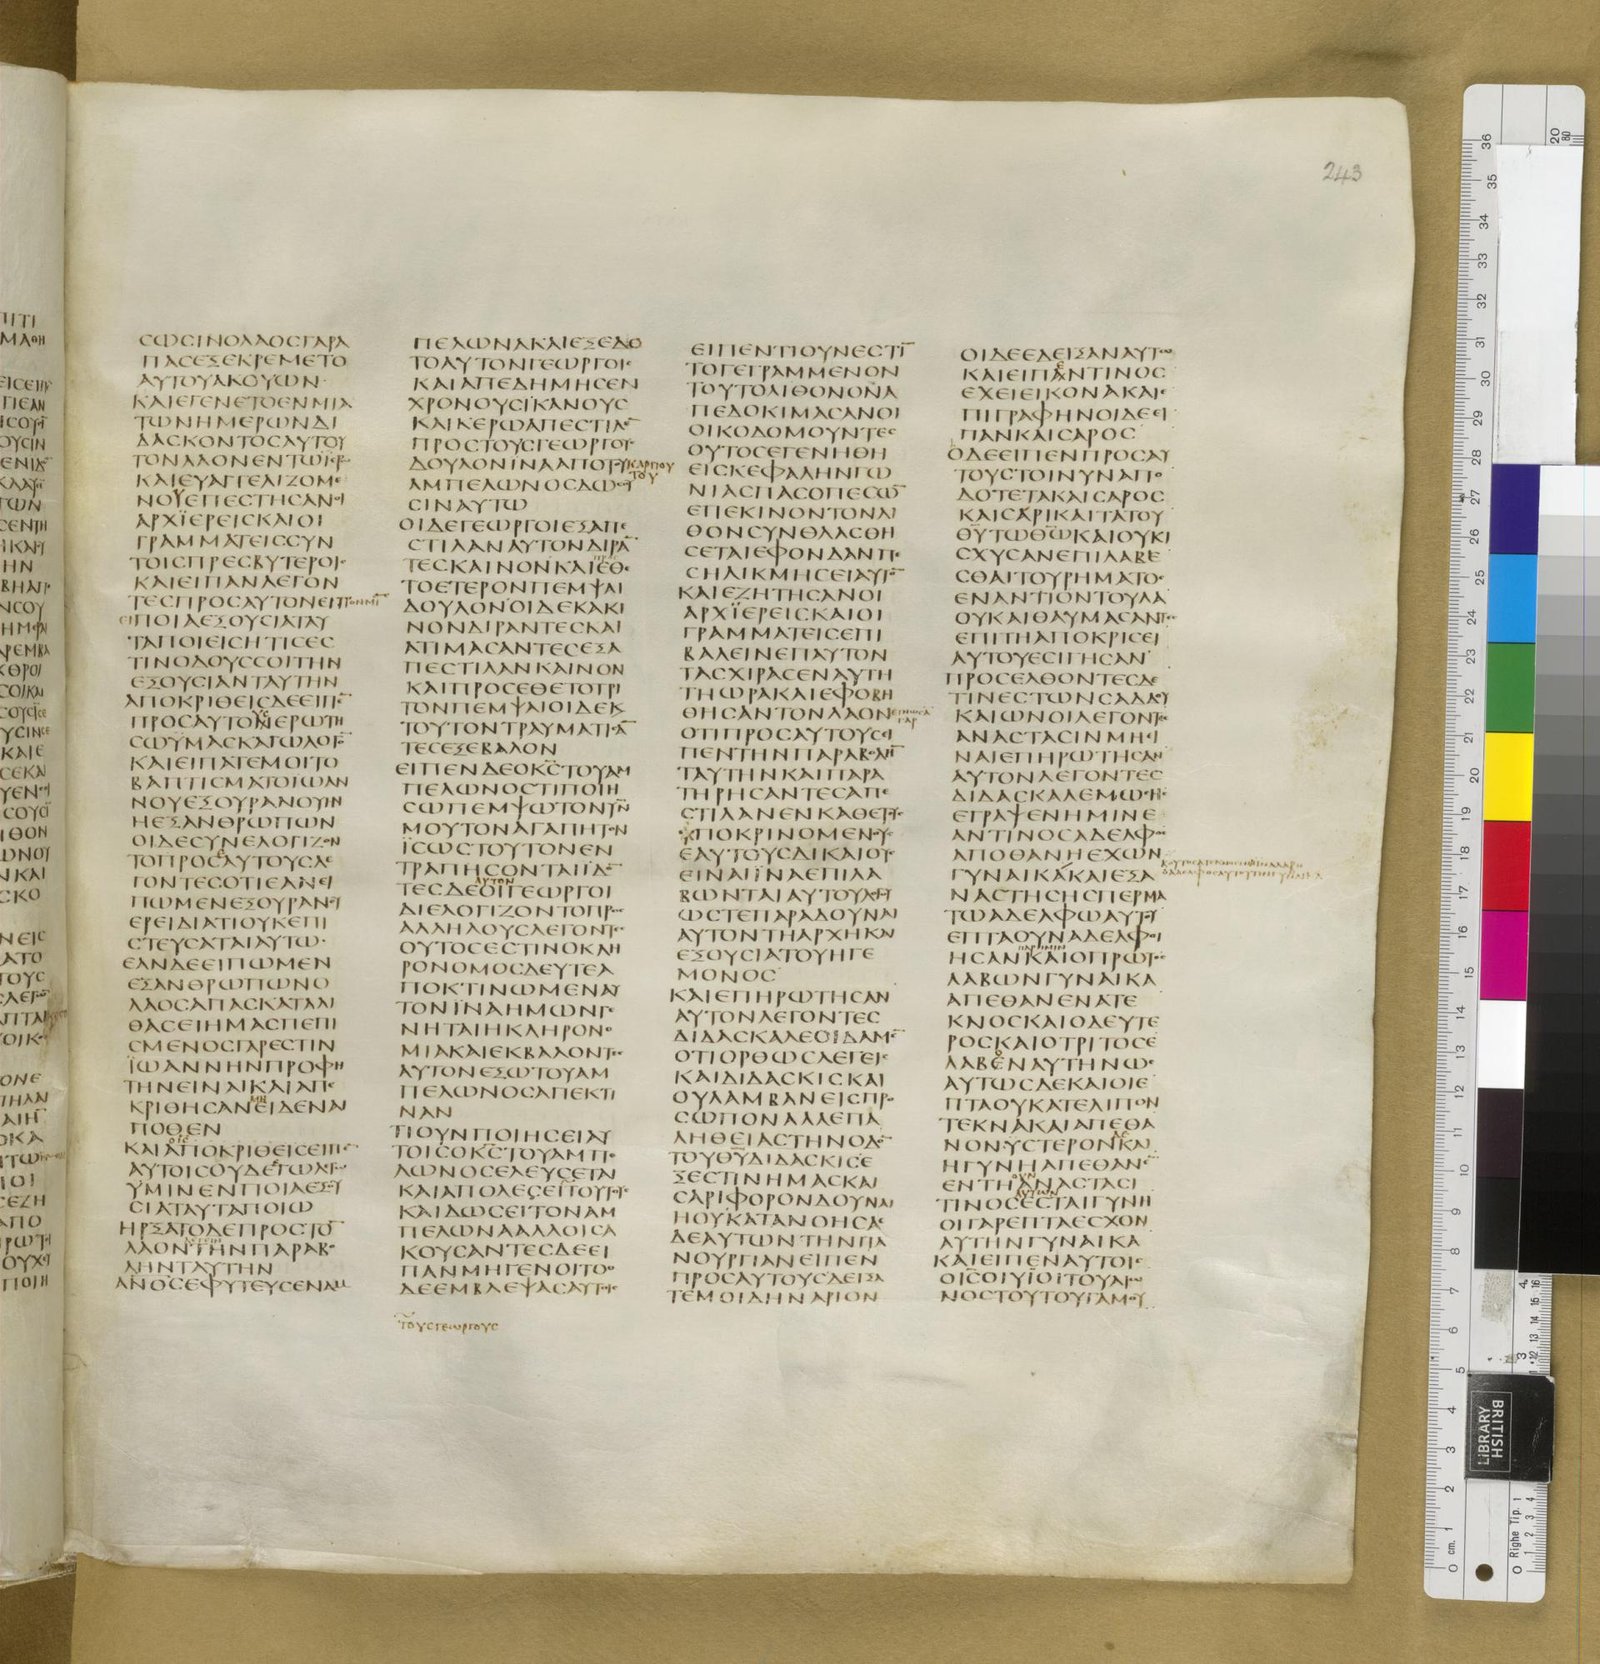 243
ϹΩϹΙΝΟΛΑΟϹΓΑΡΑ
ΠΑϹΕΞΕΚΡΕΜΕΤΟ
ΑΥΤΟΥΑΚΟΥΩΝ
ΚΑΙΕΓΕΝΕΤΟΕΝΜΙΑ
ΤΩΝΗΜΕΡΩΝΔΙ
ΔΑϹΚΟΝΤΟϹΑΥΤΟΥ
ΤΟΝΛΑΟΝΕΝΤΩΙΕΡ
ΚΑΙΕΥΑΓΓΕΛΙΖΟΜΕ
ΝΟΥΕΠΕϹΤΗϹΑΝΟΙ
ΑΡΧΪΕΡΕΙϹΚΑΙΟΙ
ΓΡΑΜΜΑΤΕΙϹϹΥΝ
ΤΟΙϹΠΡΕϹΒΥΤΕΡΟΙϹ
ΚΑΙΕΙΠΑΝΛΕΓΟΝ
ΤΕϹΠΡΟϹΑΥΤΟΝΕΙΠΟΝΗΜΙ̅
ΕΝΠΟΙΑΕΞΟΥϹΙΑΤΑΥ
ΤΑΠΟΙΕΙϹΗΤΙϹΕϹ
ΤΙΝΟΔΟΥϹϹΟΙΤΗΝ
ΕΞΟΥϹΙΑΝΤΑΥΤΗΝ
ΑΠΟΚΡΙΘΕΙϹΔΕΕΙΠΕ̅
ΠΡΟϹΑΥΤΟΥϹΕΡΩΤΗ
ϹΩΫΜΑϹΚΑΓΩΛΟΓΟ̅
ΚΑΙΕΙΠΑΤΕΜΟΙΤΟ
ΒΑΠΤΙϹΜΑΤΟΙΩΑΝ
ΝΟΥΕΞΟΥΡΑΝΟΥΗΝ
ΗΕΞΑΝΘΡΩΠΩΝ
ΟΙΔΕϹΥΝΕΛΟΓΙΖΟΝ
ΤΟΠΡΟϹΕΑΥΤΟΥϹΛΕ
ΓΟΝΤΕϹΟΤΙΕΑΝΕΙ
ΠΩΜΕΝΕΞΟΥΡΑΝΟΥ
ΕΡΕΙΔΙΑΤΙΟΥΚΕΠΙ
ϹΤΕΥϹΑΤΑΙΑΥΤΩ
ΕΑΝΔΕΕΙΠΩΜΕΝ
ΕΞΑΝΘΡΩΠΩΝΟ
ΛΑΟϹΑΠΑϹΚΑΤΑΛΙ
ΘΑϹΕΙΗΜΑϹΠΕΠΙ
ϹΜΕΝΟϹΓΑΡΕϹΤΙΝ
ΪΩΑΝΝΗΝΠΡΟΦΗ
ΤΗΝΕΙΝΑΙΚΑΙΑΠΕ
ΚΡΙΘΗϹΑΝΜΗΕΙΔΕΝΑΙ
ΠΟΘΕΝ
ΚΑΙΑΠΟΚΡΙΘΕΙϹΕΙΠΕ̅
ΑΥΤΟΙϹΟΥΔΕΓΩΛΕΓΩ
ΫΜΙΝΕΝΠΟΙΑΕΞΟΥ
ϹΙΑΤΑΥΤΑΠΟΙΩ
ΗΡΞΑΤΟΔΕΠΡΟϹΤΟ̅
ΛΑΟΝΛΕΓΕΙΝΤΗΝΠΑΡΑΒΟ
ΛΗΝΤΑΥΤΗΝ
ΑΝΟϹΕΦΥΤΕΥϹΕΝΑΜ
ΠΕΛΩΝΑΚΑΙΕΞΕΔΟ
ΤΟΑΥΤΟΝΓΕΩΡΓΟΙϹ
ΚΑΙΑΠΕΔΗΜΗϹΕΝ
ΧΡΟΝΟΥϹΙΚΑΝΟΥϹ
ΚΑΙΚΕΡΩΑΠΕϹΤΙΛΕ̅
ΠΡΟϹΤΟΥϹΓΕΩΡΓΟΥϹ
ΔΟΥΛΟΝΪΝΑΑΠΟΤΟΥΚΑΡΠΟΥ
ΤΟΥ
ΑΜΠΕΛΩΝΟϹΔΩϹΟΥ
ϹΙΝΑΥΤΩ
ΟΙΔΕΓΕΩΡΓΟΙΕΞΑΠΕ
ϹΤΙΛΑΝΑΥΤΟΝΔΙΡΑ̅
ΤΕϹΚΑΙΝΟΝΚΑΙΠΡΟϹΕΘΕ
ΤΟΕΤΕΡΟΝΠΕΜΨΑΙ
ΔΟΥΛΟΝΟΙΔΕΚΑΚΙ
ΝΟΝΔΙΡΑΝΤΕϹΚΑΙ
ΑΤΙΜΑϹΑΝΤΕϹΕΞΑ
ΠΕϹΤΙΛΑΝΚΑΙΝΟΝ
ΚΑΙΠΡΟϹΕΘΕΤΟΤΡΙ
ΤΟΝΠΕΜΨΑΙΟΙΔΕΚ
ΤΟΥΤΟΝΤΡΑΥΜΑΤΙϹΑ̅
ΤΕϹΕΞΕΒΑΛΟΝ
ΕΙΠΕΝΔΕΟΚϹΤΟΥΑΜ
ΠΕΛΩΝΟϹΤΙΠΟΙΗ
ϹΩΠΕΜΨΩΤΟΝΥΝ
ΜΟΥΤΟΝΑΓΑΠΗΤΟΝ
ΪϹΩϹΤΟΥΤΟΝΕΝ
ΤΡΑΠΗϹΟΝΤΑΙΪΔΟ̅
ΤΕϹΔΕΑΥΤΟΝΟΙΓΕΩΡΓΟΙ
ΔΙΕΛΟΓΙΖΟΝΤΟΠΡΟϹ
ΑΛΛΗΛΟΥϹΛΕΓΟΝΤΕϹ
ΟΥΤΟϹΕϹΤΙΝΟΚΛΗ
ΡΟΝΟΜΟϹΔΕΥΤΕΑ
ΠΟΚΤΙΝΩΜΕΝΑΥ
ΤΟΝΪΝΑΗΜΩΝΓΕ
ΝΗΤΑΙΗΚΛΗΡΟΝΟ
ΜΙΑΚΑΙΕΚΒΑΛΟΝΤΕϹ
ΑΥΤΟΝΕΞΩΤΟΥΑΜ
ΠΕΛΩΝΟϹΑΠΕΚΤΙ
ΝΑΝ
ΤΙΟΥΝΠΟΙΗϹΕΙΑΥ
ΤΟΙϹΟΚϹΤΟΥΑΜΠΕ
ΛΩΝΟϹΕΛΕΥϹΕΤΑΙ
ΚΑΙΑΠΟΛΕϹΕΙΤΟΥΤΟΥϹ
ΚΑΙΔΩϹΕΙΤΟΝΑΜ
ΠΕΛΩΝΑΑΛΛΟΙϹΑ
ΚΟΥϹΑΝΤΕϹΔΕΕΙ
ΠΑΝΜΗΓΕΝΟΙΤΟΟ
ΔΕΕΜΒΛΕΨΑϹΑΥΤΟΙϹ
ΤΟΥϹΓΕΩΡΓΟΥϹ
ΕΙΠΕΝΤΙΟΥΝΕϹΤΙ̅
ΤΟΓΕΓΡΑΜΜΕΝΟΝ
ΤΟΥΤΟΛΙΘΟΝΟΝΑ
ΠΕΔΟΚΙΜΑϹΑΝΟΙ
ΟΙΚΟΔΟΜΟΥΝΤΕϹ
ΟΥΤΟϹΕΓΕΝΗΘΗ
ΕΙϹΚΕΦΑΛΗΝΓΩ
ΝΙΑϹΠΑϹΟΠΕϹΩ̅
ΕΠΕΚΙΝΟΝΤΟΝΛΙ
ΘΟΝϹΥΝΘΛΑϹΘΗ
ϹΕΤΑΙΕΦΟΝΔΑΝΠΕ
ϹΗΛΙΚΜΗϹΕΙΑΥΤΟ̅
ΚΑΙΕΖΗΤΗϹΑΝΟΙ
ΑΡΧΪΕΡΕΙϹΚΑΙΟΙ
ΓΡΑΜΜΑΤΕΙϹΕΠΙ
ΒΑΛΕΙΝΕΠΑΥΤΟΝ
ΤΑϹΧΙΡΑϹΕΝΑΥΤΗ
ΤΗΩΡΑΚΑΙΕΦΟΒΗ
ΘΗϹΑΝΤΟΝΛΑΟΝΕΓΝΩϹΑ
ΓΑΡ
ΟΤΙΠΡΟϹΑΥΤΟΥϹΕΙ
ΠΕΝΤΗΝΠΑΡΑΒΟΛΗ̅
ΤΑΥΤΗΝΚΑΙΠΑΡΑ
ΤΗΡΗϹΑΝΤΕϹΑΠΕ
ϹΤΙΛΑΝΕΝΚΑΘΕΤΟΥϹ
ΥΠΟΚΡΙΝΟΜΕΝΟΥϹ
ΕΑΥΤΟΥϹΔΙΚΑΙΟΥϹ
ΕΙΝΑΙΪΝΑΕΠΙΛΑ
ΒΩΝΤΑΙΑΥΤΟΥΛΟΓΟΥ
ΩϹΤΕΠΑΡΑΔΟΥΝΑΙ
ΑΥΤΟΝΤΗΑΡΧΗΚΑΙ
ΕΞΟΥϹΙΑΤΟΥΗΓΕ
ΜΟΝΟϹ
ΚΑΙΕΠΗΡΩΤΗϹΑΝ
ΑΥΤΟΝΛΕΓΟΝΤΕϹ
ΔΙΔΑϹΚΑΛΕΟΙΔΑΜΕ̅
ΟΤΙΟΡΘΩϹΛΕΓΕΙϹ
ΚΑΙΔΙΔΑϹΚΙϹΚΑΙ
ΟΥΛΑΜΒΑΝΕΙϹΠΡΟ
ϹΩΠΟΝΑΛΛΕΠΑ
ΛΗΘΕΙΑϹΤΗΝΟΔΟ̅
ΤΟΥΘΥΔΙΔΑϹΚΙϹΕ
ΞΕϹΤΙΝΗΜΑϹΚΑΙ
ϹΑΡΙΦΟΡΟΝΔΟΥΝΑΙ
ΗΟΥΚΑΤΑΝΟΗϹΑϹ
ΔΕΑΥΤΩΝΤΗΝΠΑ
ΝΟΥΡΓΙΑΝΕΙΠΕΝ
ΠΡΟϹΑΥΤΟΥϹΔΕΙΞΑ
ΤΕΜΟΙΔΗΝΑΡΙΟΝ
ΟΙΔΕΕΔΕΙΞΑΝΑΥΤΩ
ΚΑΙΕΙΠΕΝΤΙΝΟϹ
ΕΧΕΙΕΙΚΟΝΑΚΑΙΕ
ΠΙΓΡΑΦΗΝΟΙΔΕΕΙ
ΠΑΝΚΑΙϹΑΡΟϹ
ΟΔΕΕΙΠΕΝΠΡΟϹΑΥ
ΤΟΥϹΤΟΙΝΥΝΑΠΟ
ΔΟΤΕΤΑΚΑΙϹΑΡΟϹ
ΚΑΙϹΑΡΙΚΑΙΤΑΤΟΥ
ΘΥΤΩΘΩΚΑΙΟΥΚΙ
ϹΧΥϹΑΝΕΠΙΛΑΒΕ
ϹΘΑΙΤΟΥΡΗΜΑΤΟϹ
ΕΝΑΝΤΙΟΝΤΟΥΛΑ
ΟΥΚΑΙΘΑΥΜΑϹΑΝΤΕϹ
ΕΠΙΤΗΑΠΟΚΡΙϹΕΙ
ΑΥΤΟΥΕϹΙΓΗϹΑΝ
ΠΡΟϹΕΛΘΟΝΤΕϹΔΕ
ΤΙΝΕϹΤΩΝϹΑΔΔΟΥ
ΚΑΙΩΝΟΙΛΕΓΟΝΤΕϹ
ΑΝΑϹΤΑϹΙΝΜΗΕΙ
ΝΑΙΕΠΗΡΩΤΗϹΑΝ
ΑΥΤΟΝΛΕΓΟΝΤΕϹ
ΔΙΔΑϹΚΑΛΕΜΩΫϹΗϹ
ΕΓΡΑΨΕΝΗΜΙΝΕ
ΑΝΤΙΝΟϹΑΔΕΛΦΟϹ
ΑΠΟΘΑΝΗΕΧΩΝ
ΓΥΝΑΙΚΑΚΑΙΕΞΑ
ΝΑϹΤΗϹΗϹΠΕΡΜΑ
ΤΩΑΔΕΛΦΩΑΥΤΟΥ
ΕΠΤΑΟΥΝΑΔΕΛΦΟΙ
ΗϹΑΝΠΑΡΗΜΙΝΚΑΙΟΠΡΩΤΟϹ
ΛΑΒΩΝΓΥΝΑΙΚΑ
ΑΠΕΘΑΝΕΝΑΤΕ
ΚΝΟϹΚΑΙΟΔΕΥΤΕ
ΡΟϹΚΑΙΟΤΡΙΤΟϹΕ
ΛΑΒΕΝΑΥΤΗΝΩϹ
ΑΥΤΩϹΔΕΚΑΙΟΙΕ
ΠΤΑΟΥΚΑΤΕΛΙΠΟΝ
ΤΕΚΝΑΚΑΙΑΠΕΘΑ
ΝΟΝΥϹΤΕΡΟΝΔΕΚΑΙ
ΗΓΥΝΗΑΠΕΘΑΝΕ̅
ΕΝΤΗΟΥΝΑΝΑϹΤΑϹΙ
ΤΙΝΟϹΑΥΤΩΝΕϹΤΑΙΓΥΝΗ
ΟΙΓΑΡΕΠΤΑΕϹΧΟΝ
ΑΥΤΗΝΓΥΝΑΙΚΑ
ΚΑΙΕΙΠΕΝΑΥΤΟΙϹ
ΟΙϹΟΙΥΪΟΙΤΟΥΑΙΩ
ΝΟϹΤΟΥΤΟΥΓΑΜΟΥ
BRITISH
LIBRARY